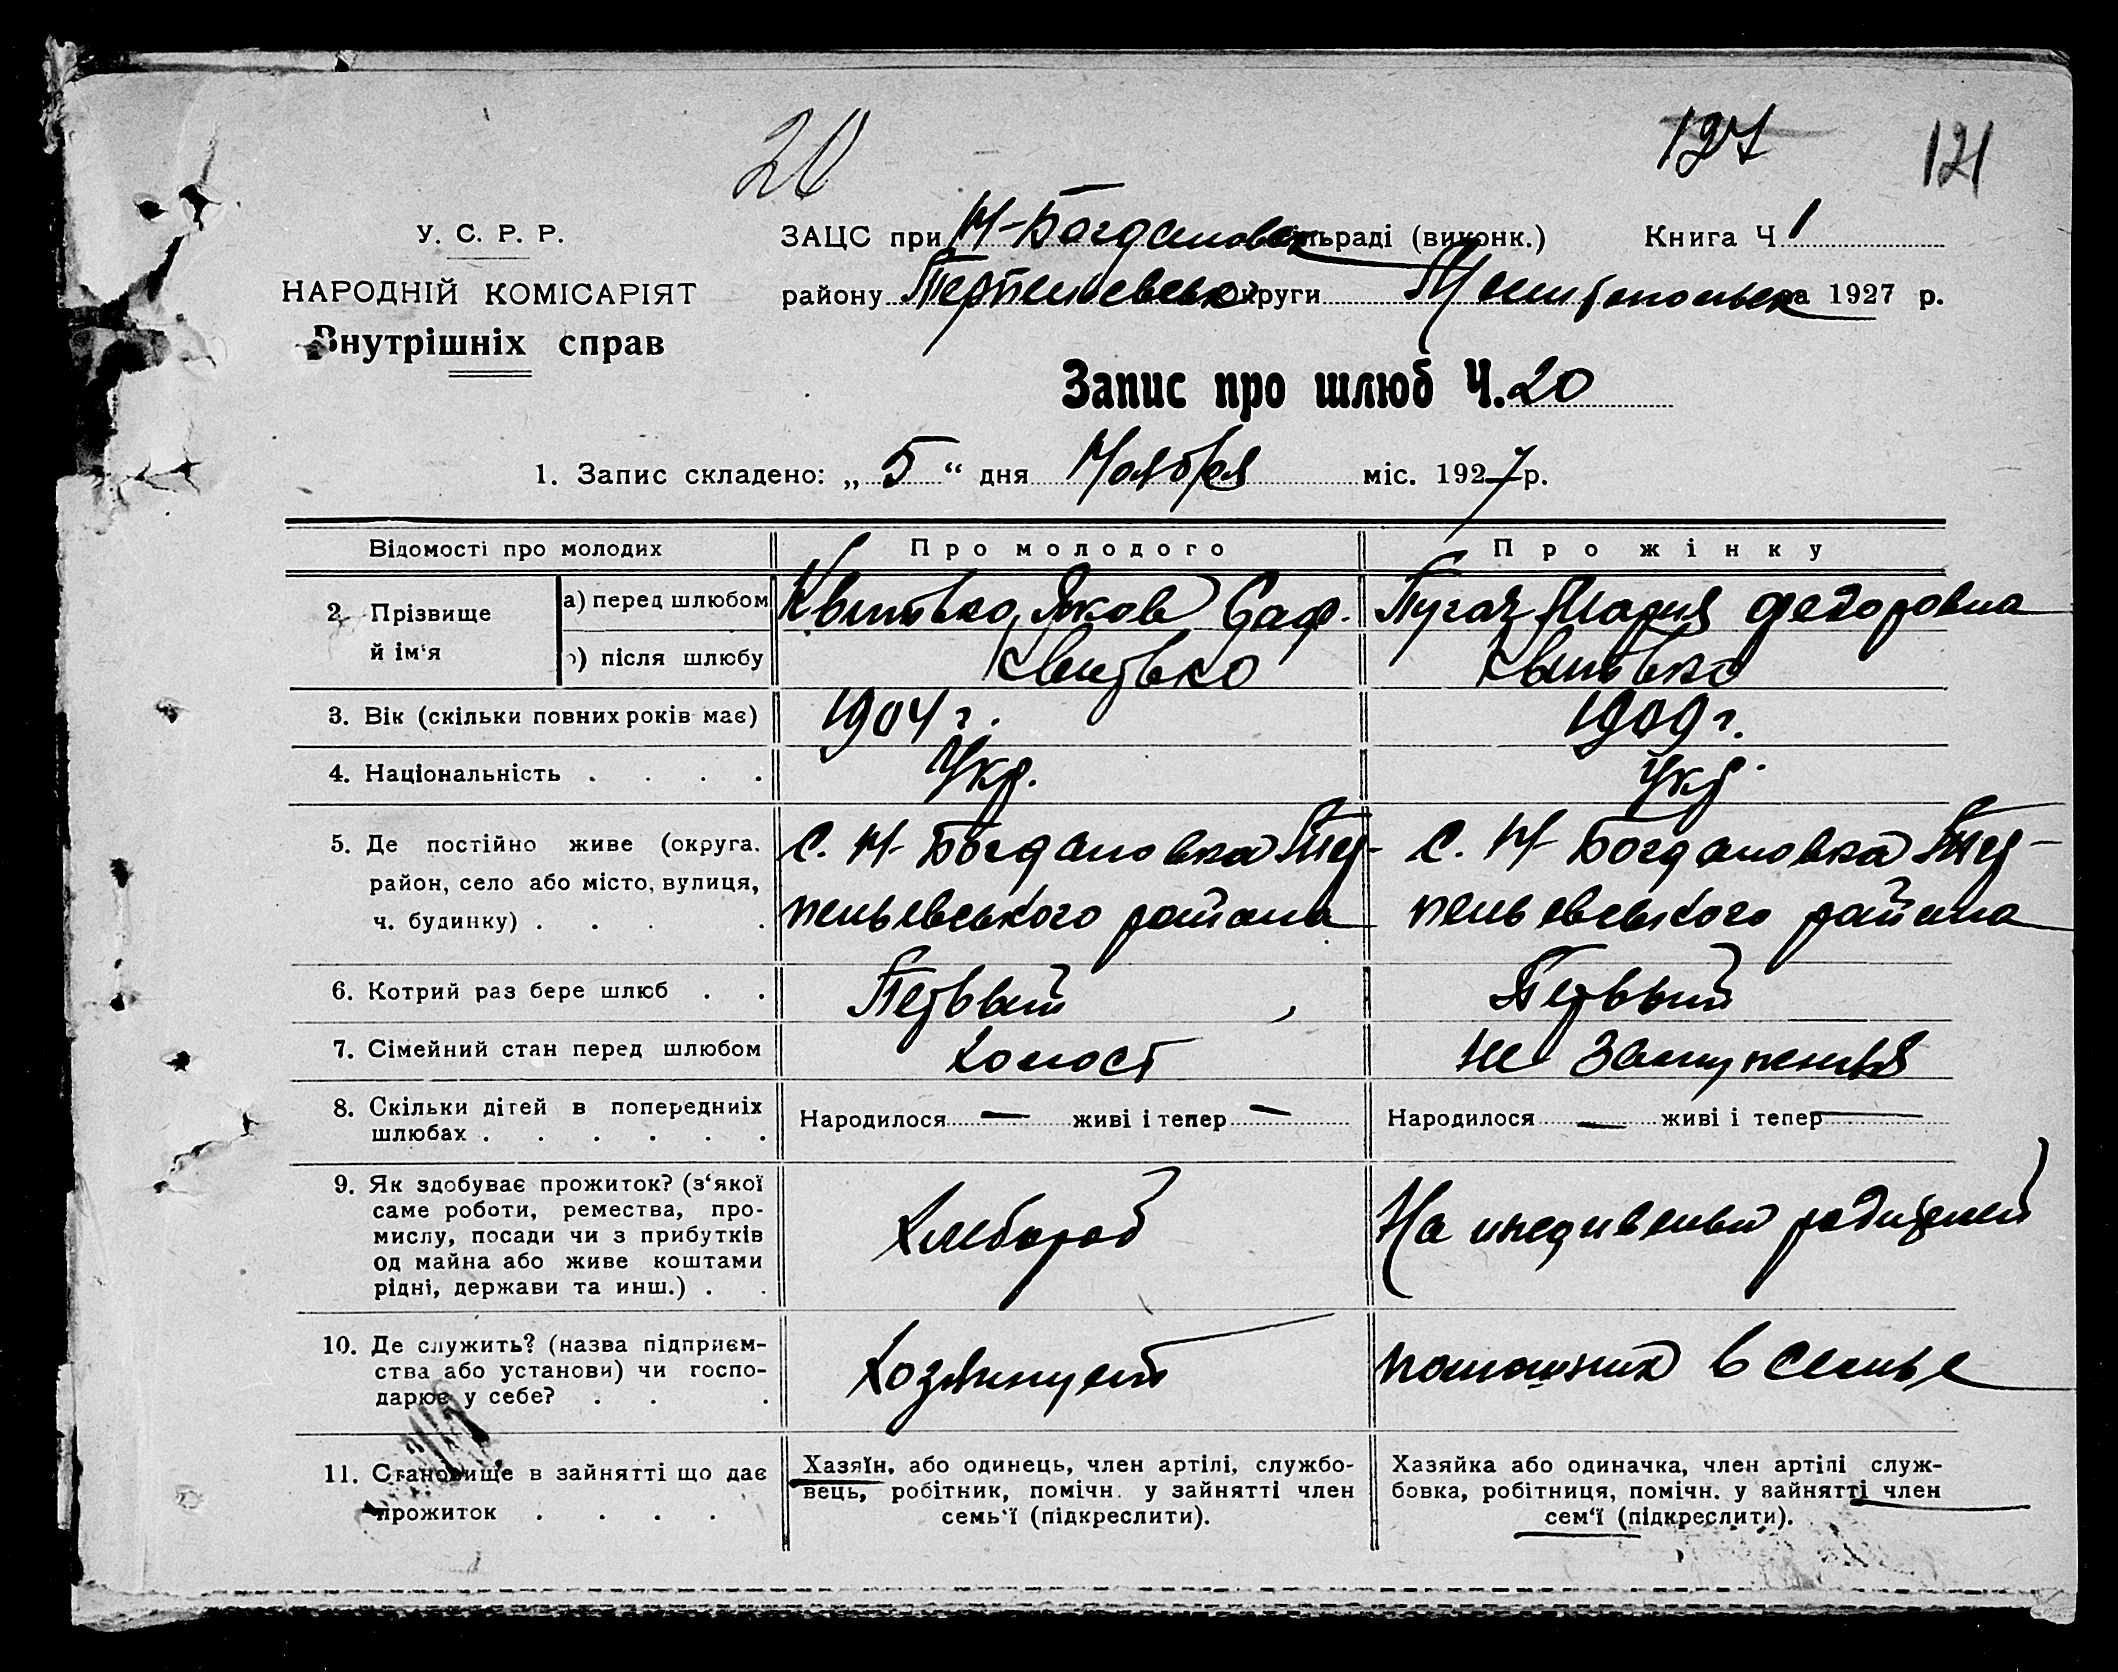 20
127
121
У. С. Р. Р.
НАРОДНІЙ КОМІСАРІЯТ
Внутрішніх справ
ЗАЦС при М-Богдановск сільраді (виконк.) Книга Ч 1
району Терпеньевськ округи Мелитопольск за 1927 р.
Запис про шлюб Ч. 20
1. Запис складено: „ 5 “ дня Ноября міс. 1927 р.
Відомості про молодих
Про молодого
Про жінку
2. Прізвище й ім‘я
а) перед шлюбом
Квитько Яков Саф.
Пугач Мария Федоровна
б) після шлюбу
Квитько
Квитько
3. Вік (скільки повних років має)
1904 г.
1909 г.
4. Національність . . . .
Укр.
Укр.
5. Де постійно живе (округа.
район, село або місто, вулиця,
ч. будинку) . . . .
С. М-Богдановка Тер-
пеньевського района
С. М-Богдановка Тер-
пеньевського района
6. Котрий раз бере шлюб . .
Первый
Первый
7. Сімейний стан перед шлюбом
Холост
Не замужняя
8. Скільки дітей в попередниіх
шлюбах . . . . . .
Народилося — живі і тепер —
Народилося — живі і тепер —
9. Як здобуває прожиток? (з‘якої
саме роботи, ремества, про-
мислу, посади чи з прибутків
од майна або живе коштами
рідні, держави та инш.) . .
Хлебороб
На иждивении родителей
10. Де служить? (назва підприєм-
ства або установи) чи госпо-
дарює у себе? . . .
Хозяинует
помошник в семье
11. Становище в зайнятті що дає
прожиток . . . .
Хазяїн, або одинець, член артілі, службо-
вець, робітник, помічн. у зайнятті член
семь‘ї (підкреслити).
Хазяйка або одиначка, член артілі служ-
бовка, робітниця, помічн. у зайнятті член
сем‘ї (підкреслити).